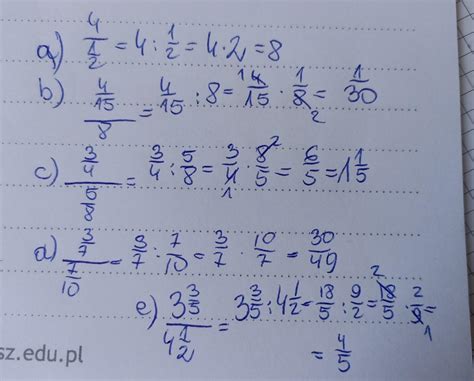 a) 4/(1/2) = 4 : 1/2 = 4 · 2 = 8
b) (4/15)/8 = 4/15 : 8 = 1 4/15 · 1/8 2 = 1/30
c) (3/4)/(5/8) = 3/4 : 5/8 = 3/4 1 · 8 2/5 = 6/5 = 1 1/5
d) (3/7)/(7/10) = 3/7 : 7/10 = 3/7 · 10/7 = 30/49
e) (3 3/5)/(4 1/2) = 3 3/5 : 4 1/2 = 18/5 : 9/2 = 2 18/5 · 2/9 1 =
= 4/5
sz.edu.pl